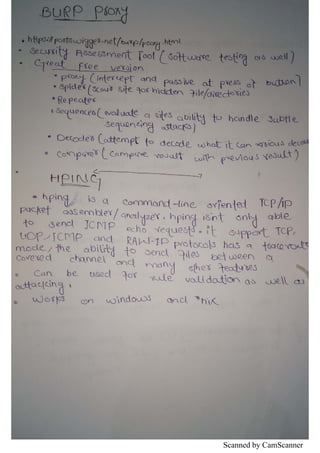 BURP PROXY
• https://portswigger.net/burp/proxy.html
• Security Assessment Tool (software testing as well)
• Great Free version
• proxy (intercept and passive at press of button)
• spider (scour site for hidden file/directories
• Repeater
• sequencer (evaluate a sites ability to handle subtle
sequencing attacks)
• Decoder (attempt to decode what it can various
• comparer (compare result with previous result)
HPING
• hping is a command-line oriented TCP/IP
packet assembler/analyzer. hping isint only able
to send ICMP echo requests. it support TCP,
UDP, ICMP and RAW-IP protocols has a traceroute
mode, the ability to send files between a
covered channel and many other features
• Can be used for rule validation as well as
attacking.
• Works on windows and *nix
Scanned by CamScanner